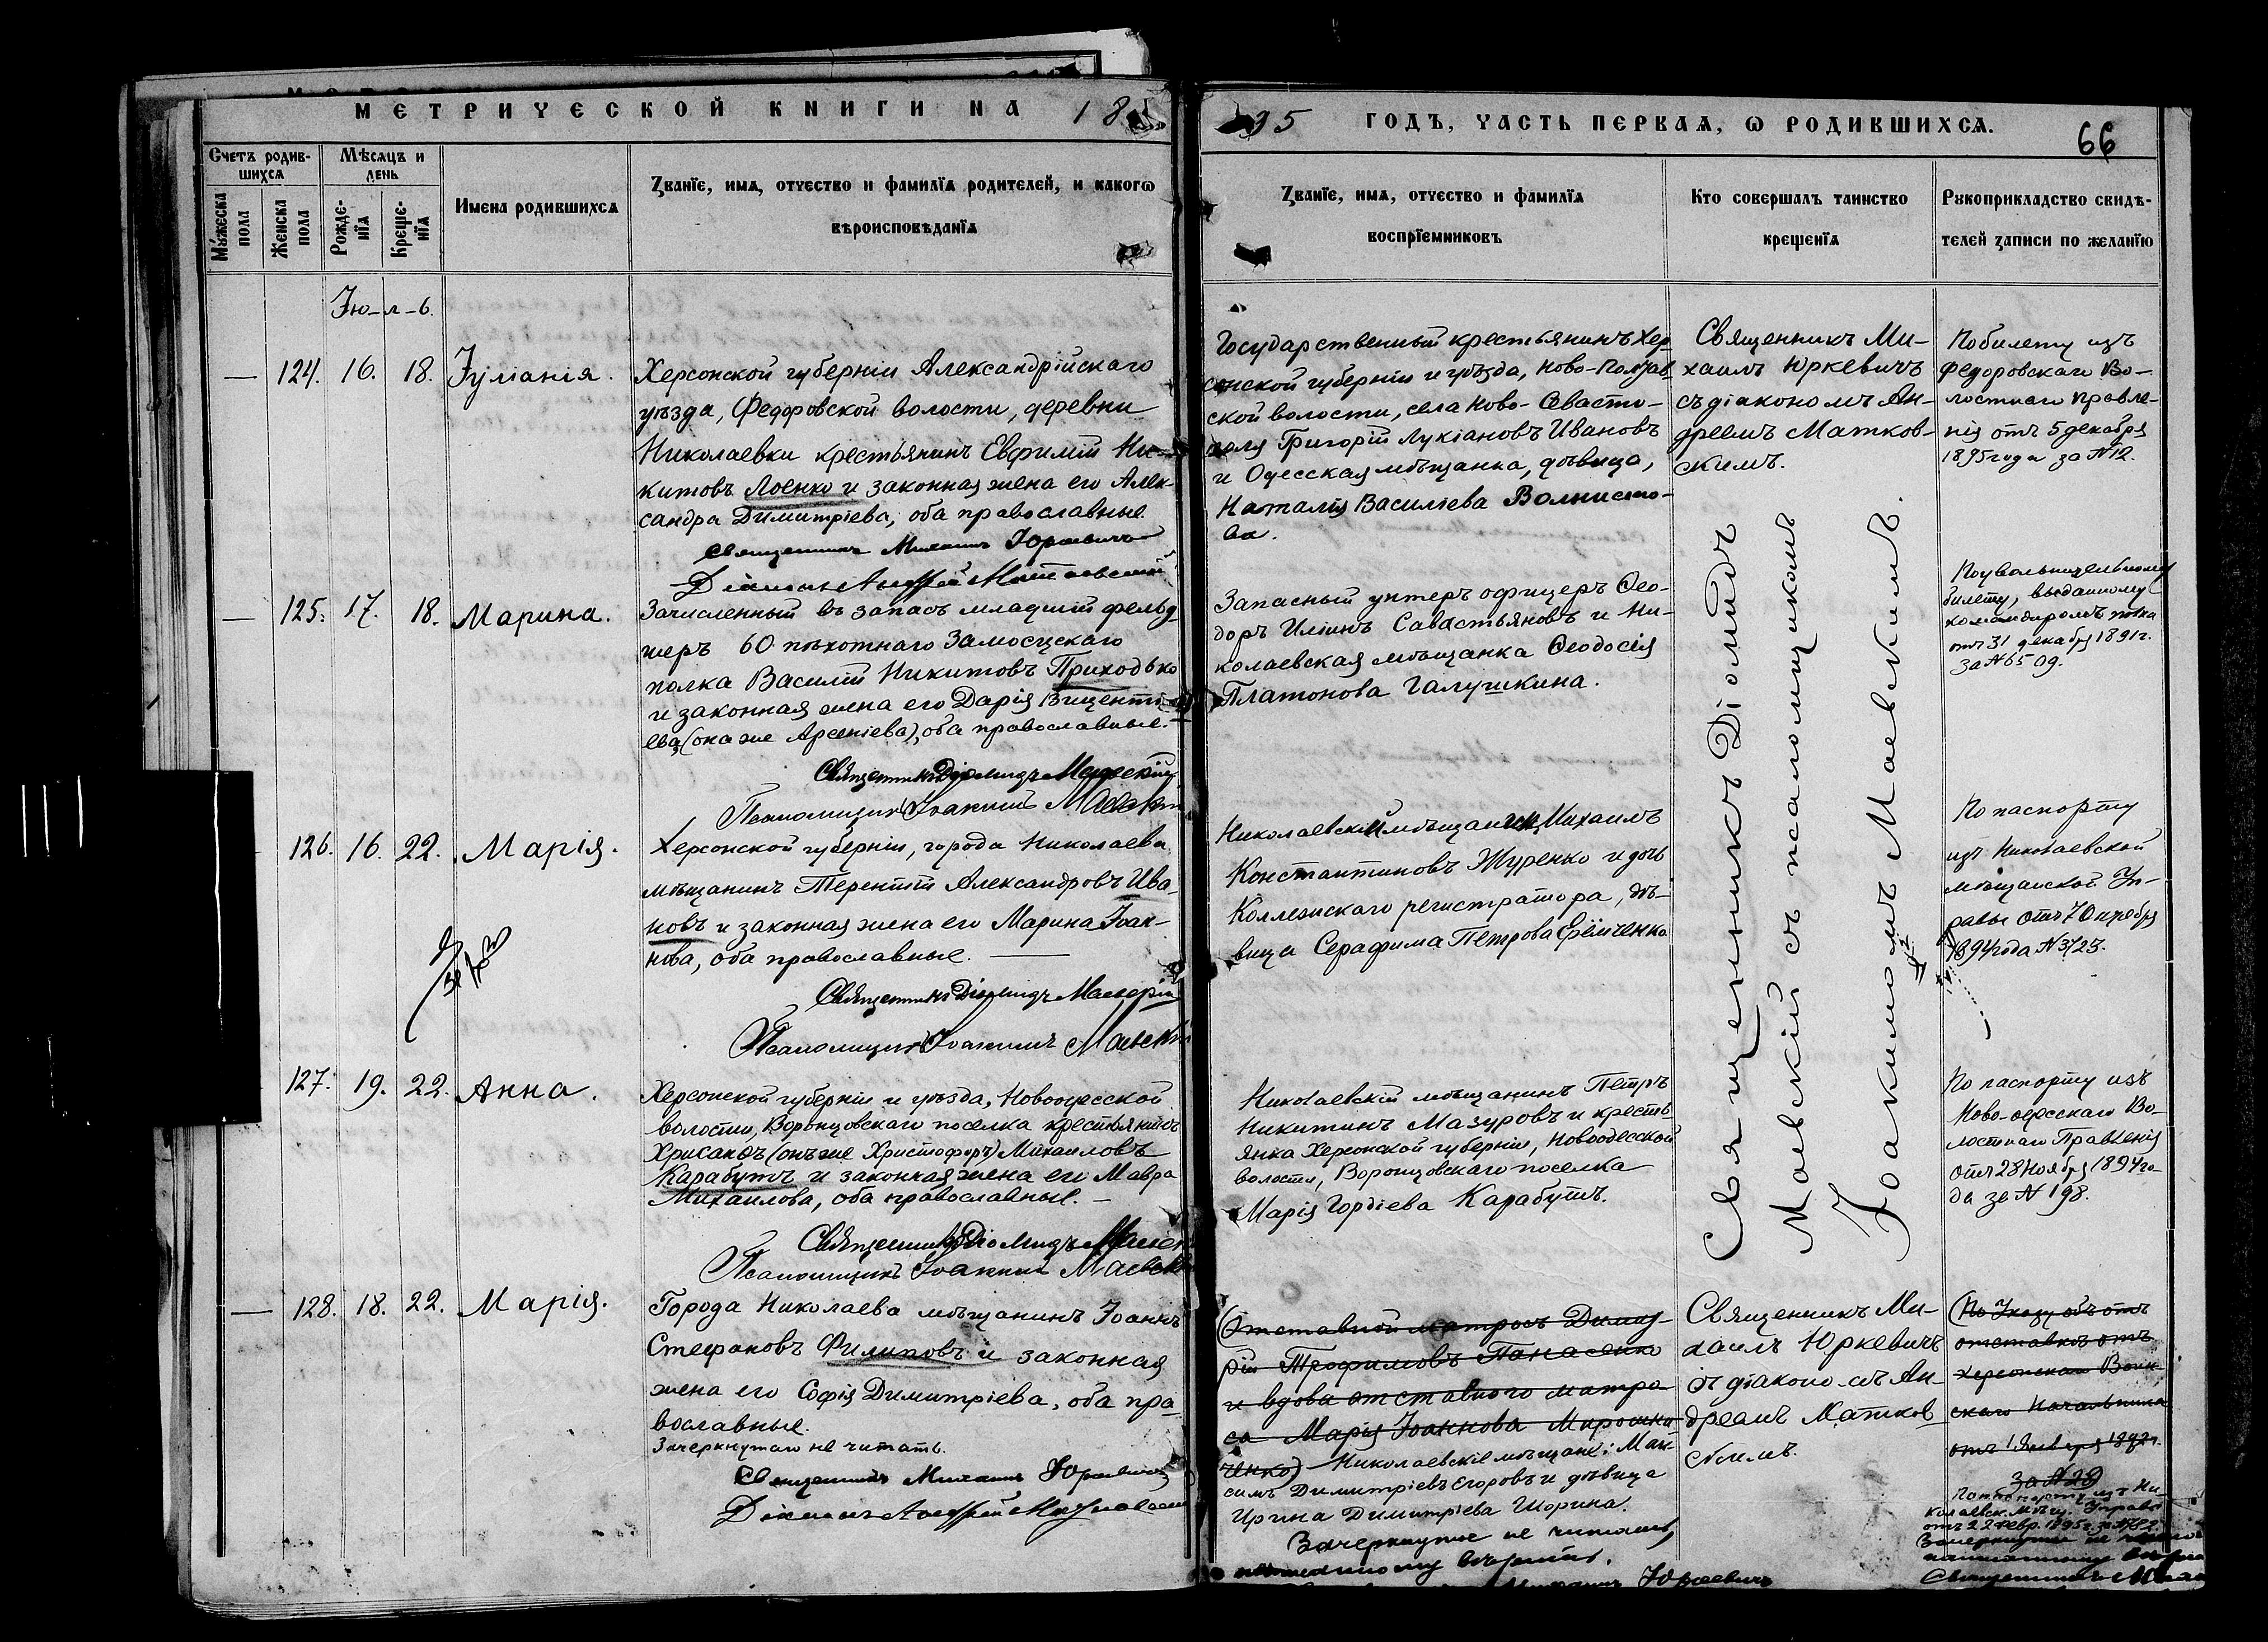 МЕТРИЧЕСКОЙ КНИГИ НА 18
95 ГОДЪ, ЧАСТЬ ПЕРВАЯ, Ѡ РОДИВШИХСЯ.
66
Счетъ родив-
шихся
Мѣсяцъ и
день
Мужеска
пола
Женска
пола
Рожде-
нїя
Креще-
нїя
Имена родившихся
Званїе, имя, отчество и фамилїя родителей, и какогѡ
вѣроисповѣданїя
Званїе, имя, отчество и фамилїя
воспрїемниковъ
Кто совершалъ таинство
крещенїя
Рукоприкладство свидѣ-
телей записи по желанїю
Iю-л-ь.
— 124. 16. 18. Iуліанія.
Херсонской губерніи Александрійскаго
уѣзда, Федоровской волости, деревни
Николаевки крестьянинъ Евфимій Ни-
китовъ Лоенко и законная жена его Алек-
сандра Димитріева, оба православные.
Священникъ Михаилъ Юркевичъ
Діаконъ Андрей Матковскій
Государственный крестьянинъ Хер-
сонской губерніи и уѣзда, Ново-
ской волости, села Ново-Севасто-
поля Григорій Лукіановъ Ивановъ
и Одесская мѣщанка, дѣвица,
Наталія Василіева Волнисто-
ва.
Священникъ Ми-
хаилъ Юркевичъ
съ діакономъ Ан-
дреемъ Матков-
скимъ.
По билету изъ
Федоровскаго Во-
лостнаго Правле-
нія отъ 5 декабря
1895 года за №12.
— 125. 17. 18. Марина.
Зачисленный въ запасъ младшій фельд-
шеръ 60 пѣхотнаго Замосцскаго
полка Василій Никитовъ Приходько
и законная жена его Дарія Викенті-
ева, (она же Арсеніева), оба православные.
Священникъ Діомидъ Маевскій
Псаломщикъ Іоакимъ Маевскій
Запасный унтеръ офицеръ Ѳео-
доръ Иліинъ Савастьяновъ и Ни-
колаевская мѣщанка Ѳеодосія
Платонова Галушкина.
По увольнительному
билету, выданному
командиромъ полка
отъ 31 декабря 1891 г.
за № 6509.
Священникъ Діомидъ
Маевскій съ псаломщикомъ
Іоакимомъ Маевскимъ.
126. 16. 22. Марія.
Херсонской губерніи, города Николаева
мѣщанинъ Терентій Александровъ Ива-
новъ и законная жена его Марина Іоан-
нова, оба православные.
Священникъ Діомидъ Маевскій
Псаломщикъ Іоакимъ Маевскій
Николаевскій мѣщанинъ Михаилъ
Константиновъ Журенко и дочь
Коллежскаго регистратора, дѣ-
вица Серафима Петрова Ерёмченко
По паспорту
изъ Николаевской
мѣщанской Уп-
равы отъ 7 Октября
1894 года № 3723.
127. 19. 22. Анна.
Херсонской губерніи и уѣзда, Новоодесской
волости, Воронцовскаго поселка крестьянинъ
Хрисанѳъ (онъ же Христофоръ) Михаиловъ
Карабутъ и законная жена его Мавра
Михаилова, оба православные. —
Священникъ Діомидъ Маевск
Псаломщикъ Іоакимъ Маевскі
Николаевскій мѣщанинъ Петръ
Никитинъ Мазуровъ и кресть-
янка Херсонской губерніи, Новоодесской
волости, Воронцовскаго поселка
Марія Гордіева Карабутъ.
По паспорту изъ
Ново-одесскаго Во-
лостнаго Правленія
отъ 28 Ноября 1894 го-
да за № 198.
— 128. 18. 22. Марія.
Города Николаева мѣщанинъ Іоаннъ
Стефановъ Филиповъ и законная
жена его Софія Димитріева, оба пра-
вославные.
Зачеркнутаго не читать.
Священникъ Михаилъ Юркевичъ
Діаконъ Андрей Матковскій
(Отставной матросъ Димит-
рій Трофимовъ Панасенко
и вдова отставного матро-
са Марія Іоаннова Мирошни-
ченко) Николаевскіе мѣщане: Мак-
симъ Димитріевъ Егоровъ и дѣвица
Ирина Димитріева Шорина.
Зачеркнутое не читать,
написанному вѣрить.
Юркевичъ
Священникъ Ми-
хаилъ Юркевичъ
съ діакономъ Ан-
дреемъ Матков-
скимъ.
(По Указу объ отъ
отставкѣ отъ
Херсонскаго Воин-
скаго Начальника
отъ 1 Января 1892 г.
За № 28)
По паспорту изъ Ни-
колаевск. Мѣщ. Управы
отъ 22 Февр. 1895 г. за №
Зачеркнутое не
написанному
Священникъ